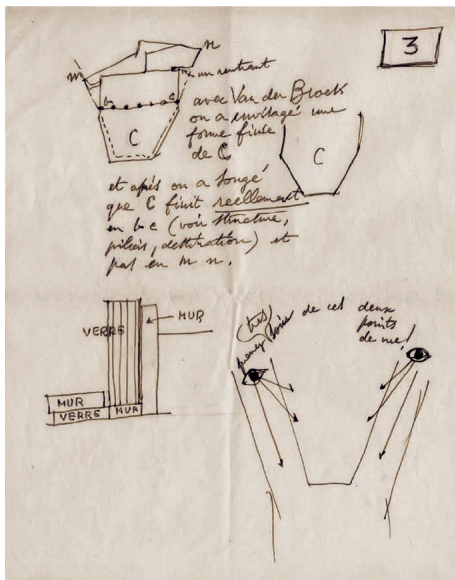 3
m
n
un rentrant
b
c
C
avec Van der Broek
on a envisagé une
forme finie
de C
C
et après on a songé
que C finit reellement
en b c (voir structure,
piliers, destination) et
pas en m n.
VERRE
MUR
MUR
VERRE
MUR
(très
bonne de ces deux
points
de vue!